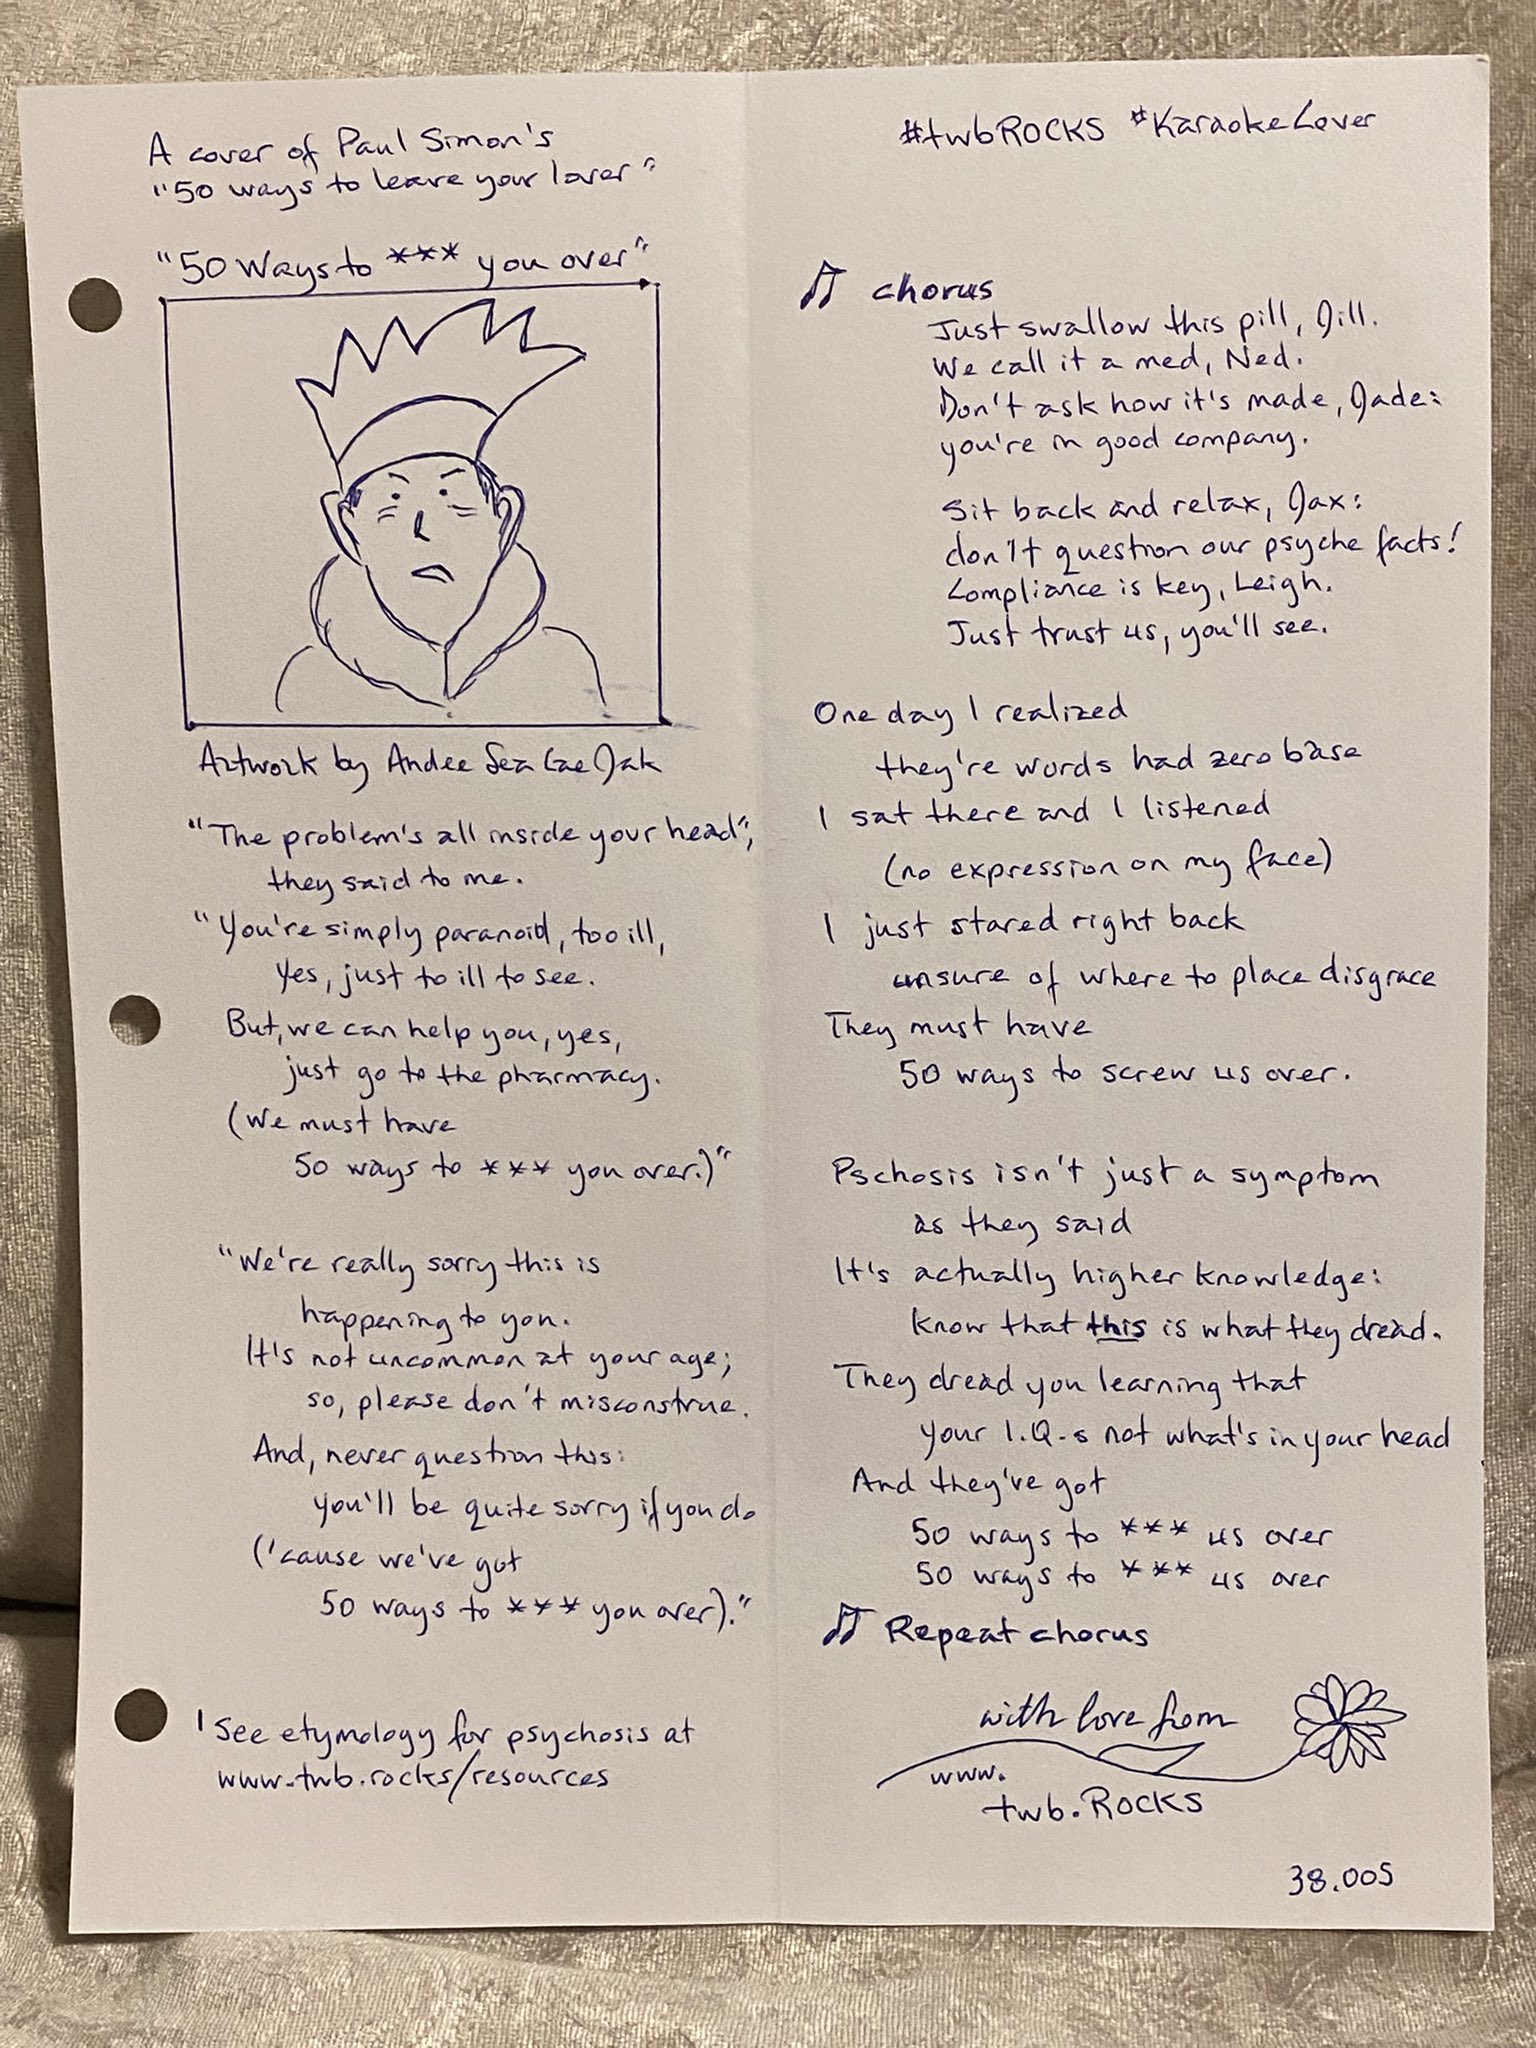 A cover of Paul Simon's
"50 ways to leave your lover"
"50 Ways to *** you over"
Artwork by Andee Sea Cae Jak
"The problem's all inside your head",
they said to me.
"You're simply paranoid, too ill,
Yes, just to ill to see.
But, we can help you, yes,
just go to the pharmacy.
(We must have
50 ways to *** you over.)"
"We're really sorry this is
happening to you.
It's not uncommon at your age;
so, please don't misconstrue.
And, never question this:
you'll be quite sorry if you do
('cause we've got
50 ways to *** you over)."
1 See etymology for psychosis at
www.twb.rocks/resources
#twbROCKS #KaraokeLover
♫ chorus
Just swallow this pill, Jill.
We call it a med, Ned.
Don't ask how it's made, Jade:
you're in good company.
Sit back and relax, Jax:
don't question our psyche facts!
Compliance is key, Leigh.
Just trust us, you'll see.
One day I realized
they're words had zero base
I sat there and I listened
(no expression on my face)
I just stared right back
unsure of where to place disgrace
They must have
50 ways to screw us over.
Pschosis isn't just a symptom
as they said
It's actually higher knowledge:
know that this is what they dread.
They dread you learning that
your I.Q.s not what's in your head
And they've got
50 ways to *** us over
50 ways to *** us over
♫ Repeat chorus
with love from
www.
twb.ROCKS
38.005